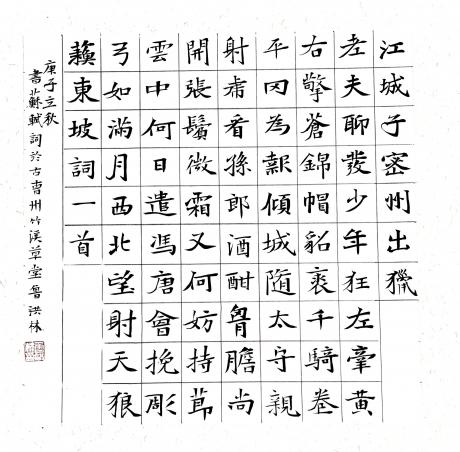 江城子密州出獵
老夫聊發少年狂左牽黃
右擎蒼錦帽貂裘千騎卷
平冈為報傾城隨太守親
射虎看孫郎酒酣胷膽尚
開張鬢微霜又何妨持節
雲中何日遣馮唐會挽彫
弓如滿月西北望射天狼
蘓東坡詞一首
庚子立秋
書蘇軾詞於古曹州竹溪草堂魯洪林